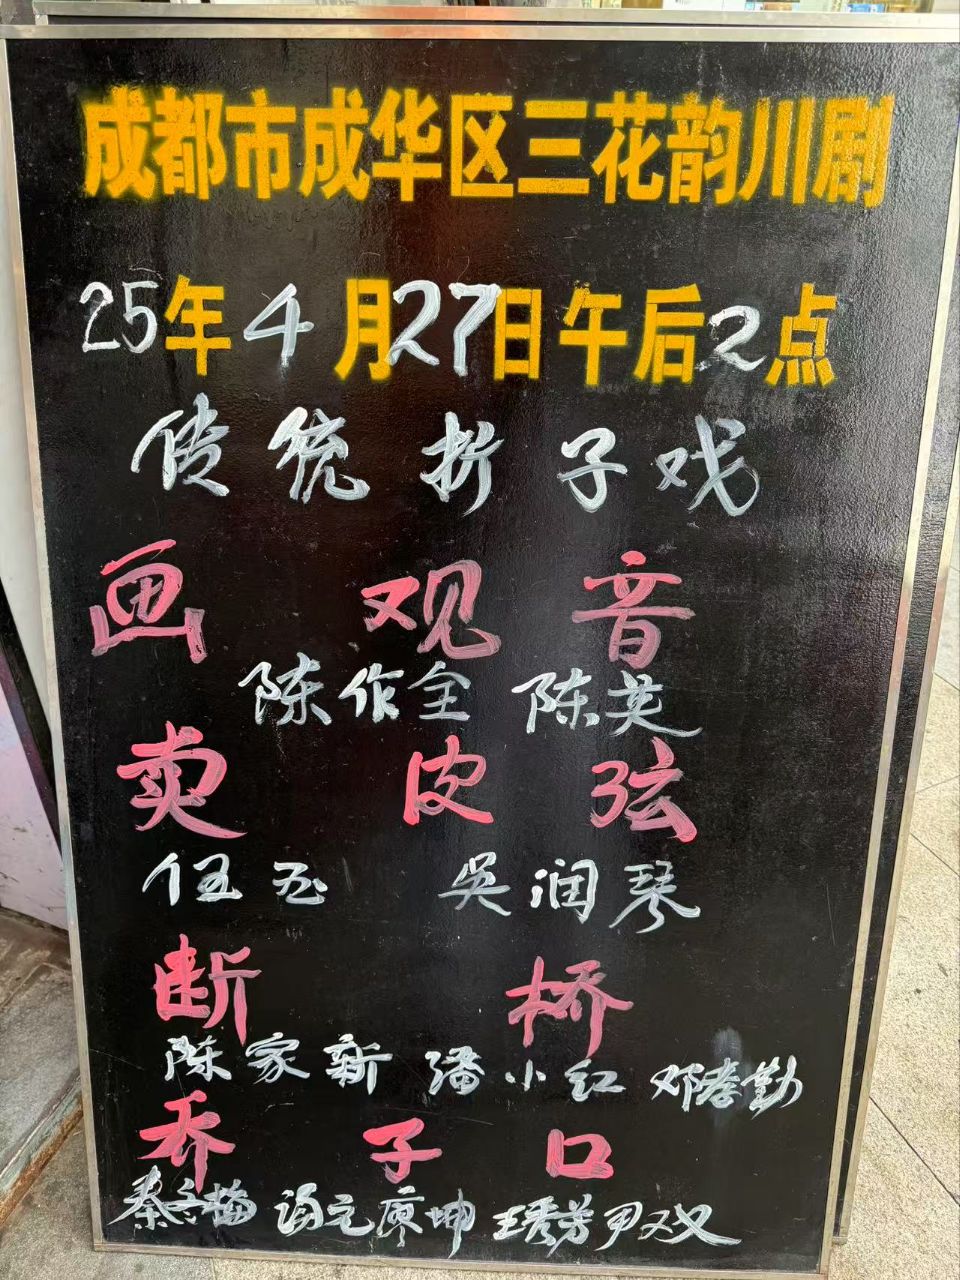 成都市成华区三花韵川剧
25年4月27日午后2点
传统折子戏
画观音
陈作全 陈英
卖皮弦
伍玉 吴润琴
断桥
陈家新 潘小红 邓孝勤
乔子口
秦 梅 元 庹坤 王秀芳 尹双